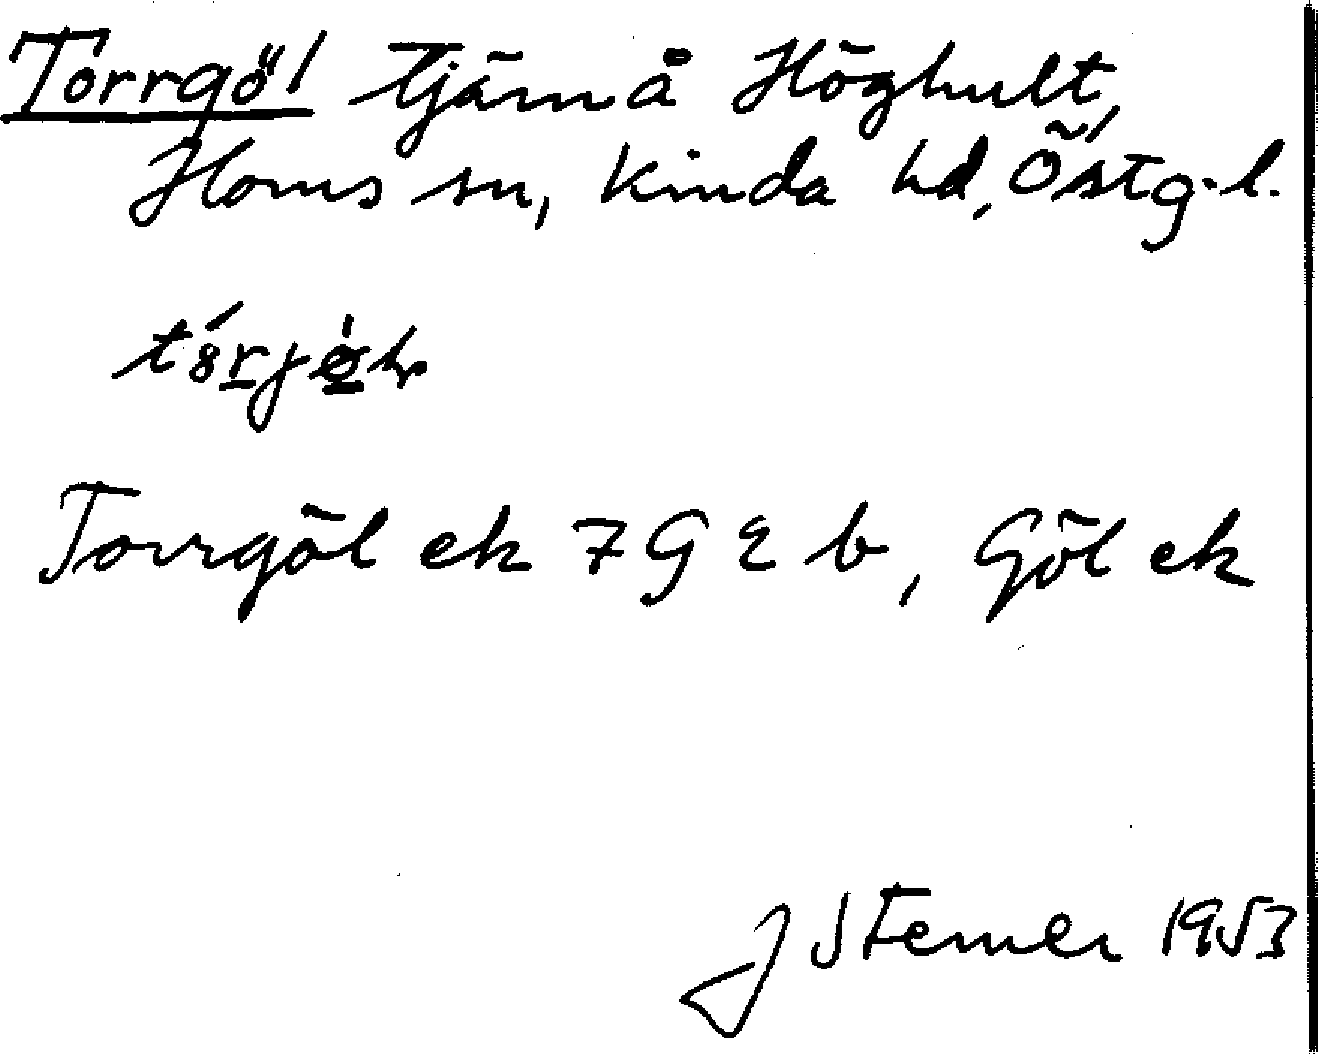 Torrgöl tjärn å Höghult,
Horns sn, Kinda hd, Östg.l.
Torrgöl ek 7 G ε b, Göl ek
J Sterner 1953